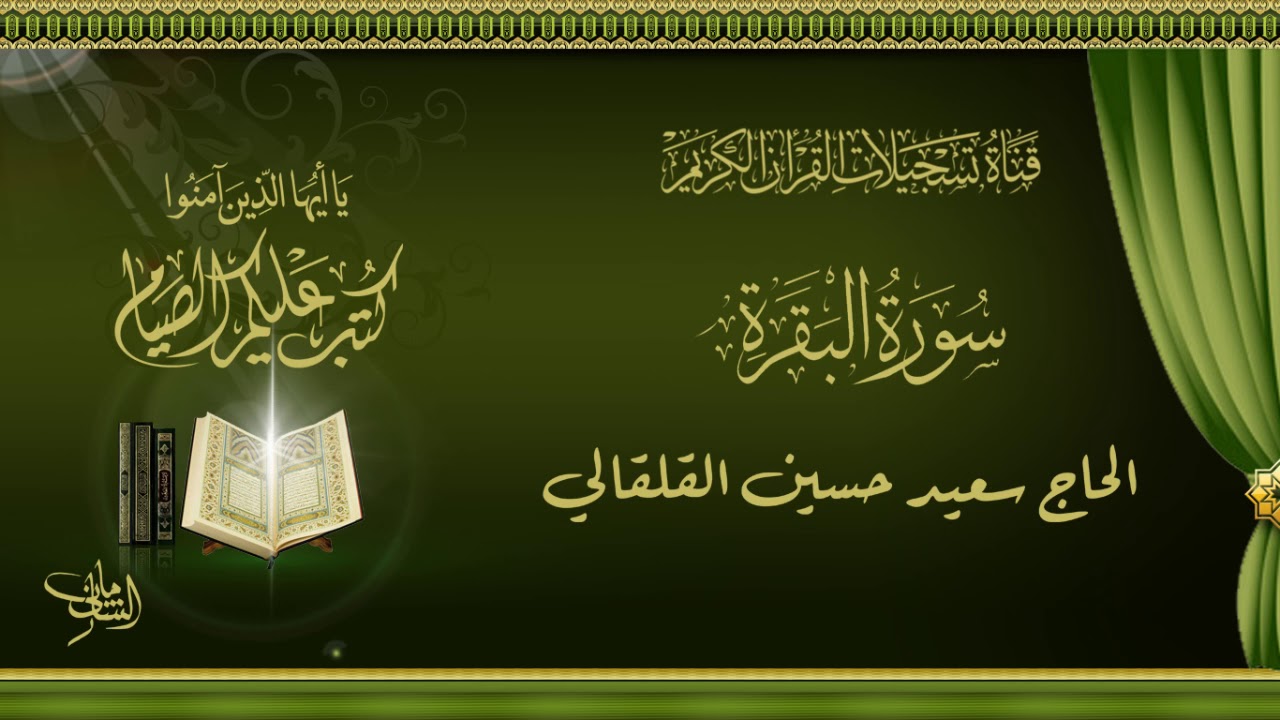 قَنَاةُ تَسْجِيلَاتِ القُرْآنِ الكَرِيمِ
سُورَةُ الْبَقَرَةِ
الحاج سعيد حسين القلقالي
يَا أَيُّهَا الَّذِينَ آمَنُوا
كُتِبَ عَلَيْكُمُ الصِّيَامُ